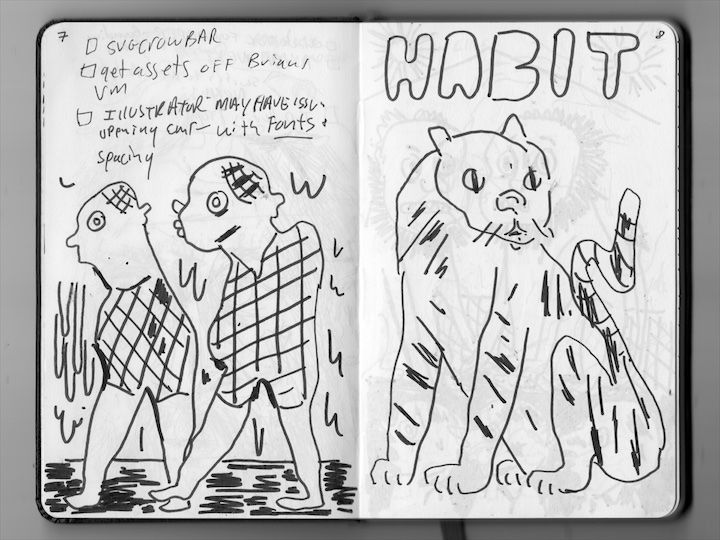 7
SVGCROWBAR
get assets off Brians
VM
ILLUSTRATOR MAY HAVE issu
opening with Fonts +
spacing
HABIT
8